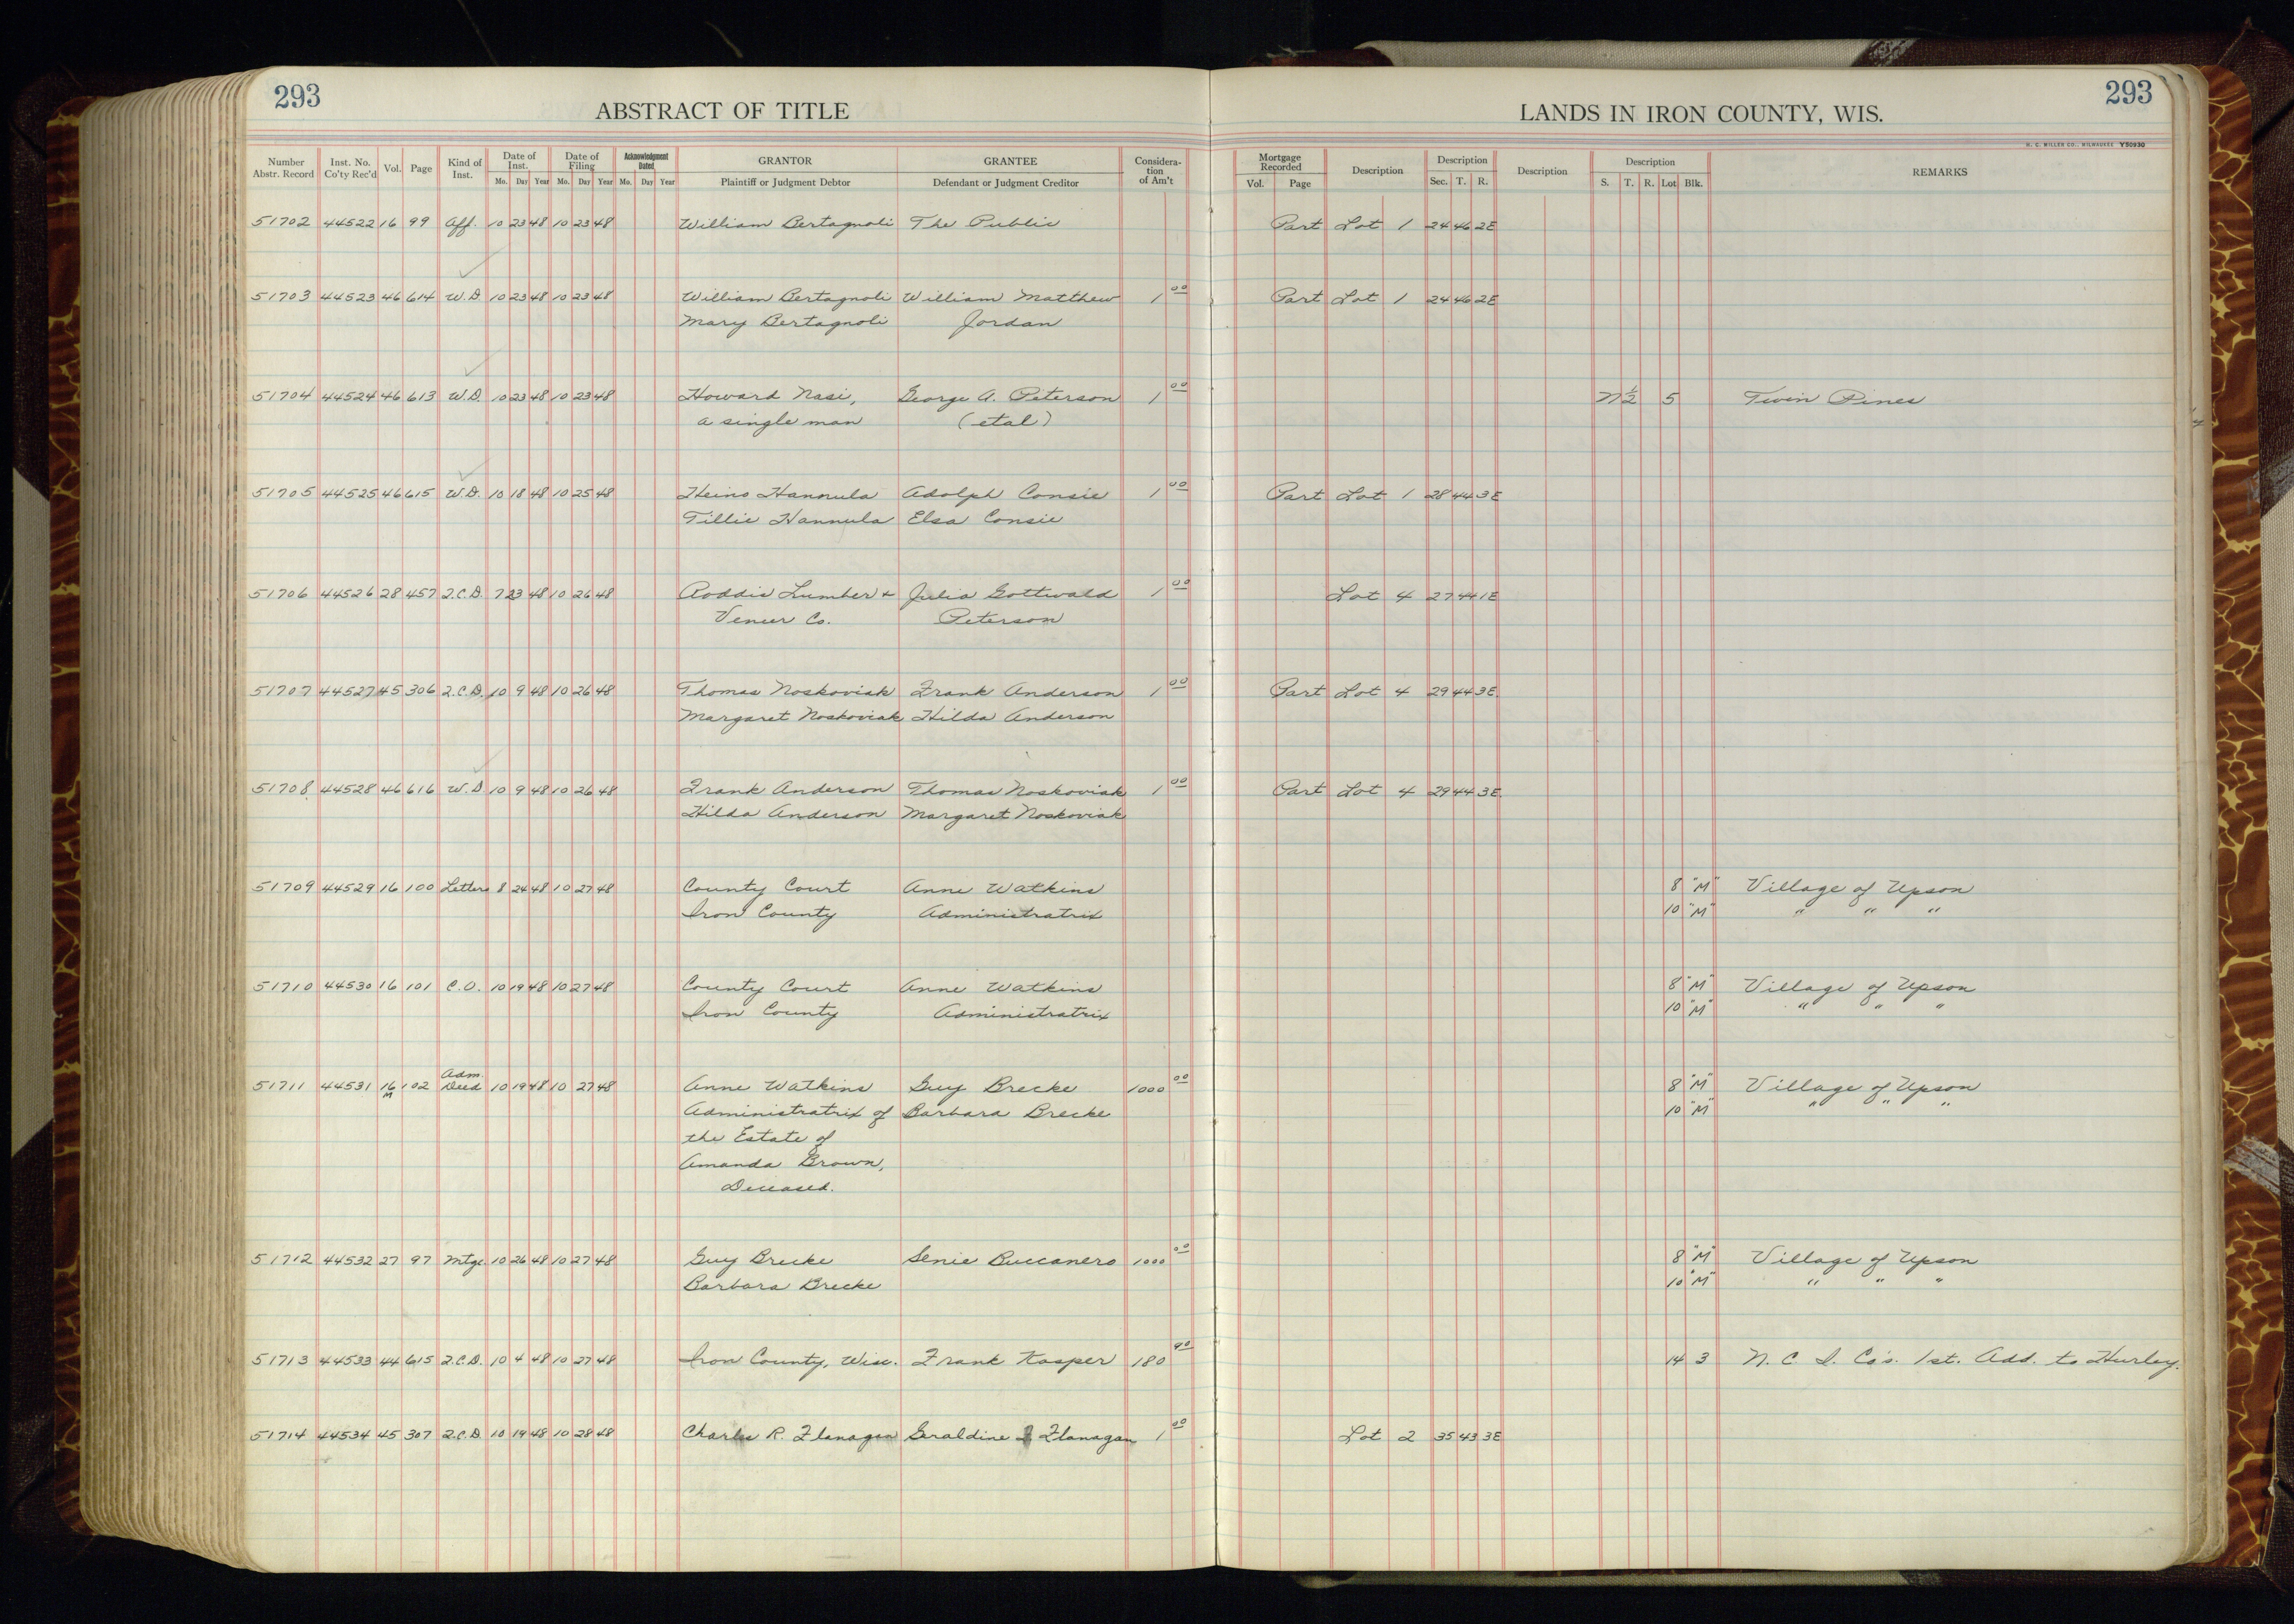 293
ABSTRACT OF TITLE
LANDS IN IRON COUNTY, WIS.
293
H. C. MILLER CO., MILWAUKEE Y50930
Number Abstr. Record | Inst. No. Co'ty Rec'd | Vol. | Page | Kind of Inst. | Date of Inst. Mo. Day Year | Date of Filing Mo. Day Year | Acknowledgment Dated Mo. Day Year | GRANTOR Plaintiff or Judgment Debtor | GRANTEE Defendant or Judgment Creditor | Considera-tion of Am't | Mortgage Recorded Vol. Page | Description | Description Sec. T. R. | Description | Description S. T. R. Lot Blk. | REMARKS
51702 44522 16 99 Aff. 10 23 48 10 23 48 William Bertagnoli The Public Part Lot 1 24 46 2E
51703 44523 46 614 W.D. 10 23 48 10 23 48 William Bertagnoli William Matthew 1 00 Part Lot 1 24 46 2E
Mary Bertagnoli Jordan
51704 44524 46 613 W.D. 10 23 48 10 23 48 Howard Nasi, George A. Peterson 1 00 N 1/2 5 Twin Pines
a single man (etal)
51705 44525 46 615 W.D. 10 18 48 10 25 48 Heino Hannula Adolph Consie 1 00 Part Lot 1 28 44 3E
Tillie Hannula Elsa Consie
51706 44526 28 457 Q.C.D. 7 23 48 10 26 48 Roddis Lumber & Julia Gottwald 1 00 Lot 4 27 44 1E
Veneer Co. Peterson
51707 44527 45 306 Q.C.D. 10 9 48 10 26 48 Thomas Noskoviak Frank Anderson 1 00 Part Lot 4 29 44 3E.
Margaret Noskoviak Hilda Anderson
51708 44528 46 616 W.D 10 9 48 10 26 48 Frank Anderson Thomas Noskoviak 1 00 Part Lot 4 29 44 3E.
Hilda Anderson Margaret Noskoviak
51709 44529 16 100 Letters 8 24 48 10 27 48 County Court Anne Watkins 8 "M" Village of Upson
Iron County Administratrix 10 "M" " " "
51710 44530 16 101 C.O. 10 19 48 10 27 48 County Court Anne Watkins 8 "M" Village of Upson
Iron County Administratrix 10 "M" " " "
51711 44531 16 M 102 Adm. Deed 10 19 48 10 27 48 Anne Watkins Guy Brecke 1000 00 8 "M" Village of Upson
Administratrix of Barbara Brecke 10 "M" " " "
the Estate of
Amanda Brown,
Deceased.
51712 44532 27 97 Mtge. 10 26 48 10 27 48 Guy Brecke Senie Buccanero 1000 00 8 "M" Village of Upson
Barbara Brecke 10 "M" " " "
51713 44533 44 615 Q.C.D. 10 4 48 10 27 48 Iron County, Wisc. Frank Kasper 180 90 14 3 N. C. I. Co's. 1st. Add. to Hurley.
51714 44534 45 307 Q.C.D. 10 19 48 10 28 48 Charles R. Flanagan Geraldine Flanagan 1 00 Lot 2 35 43 3E